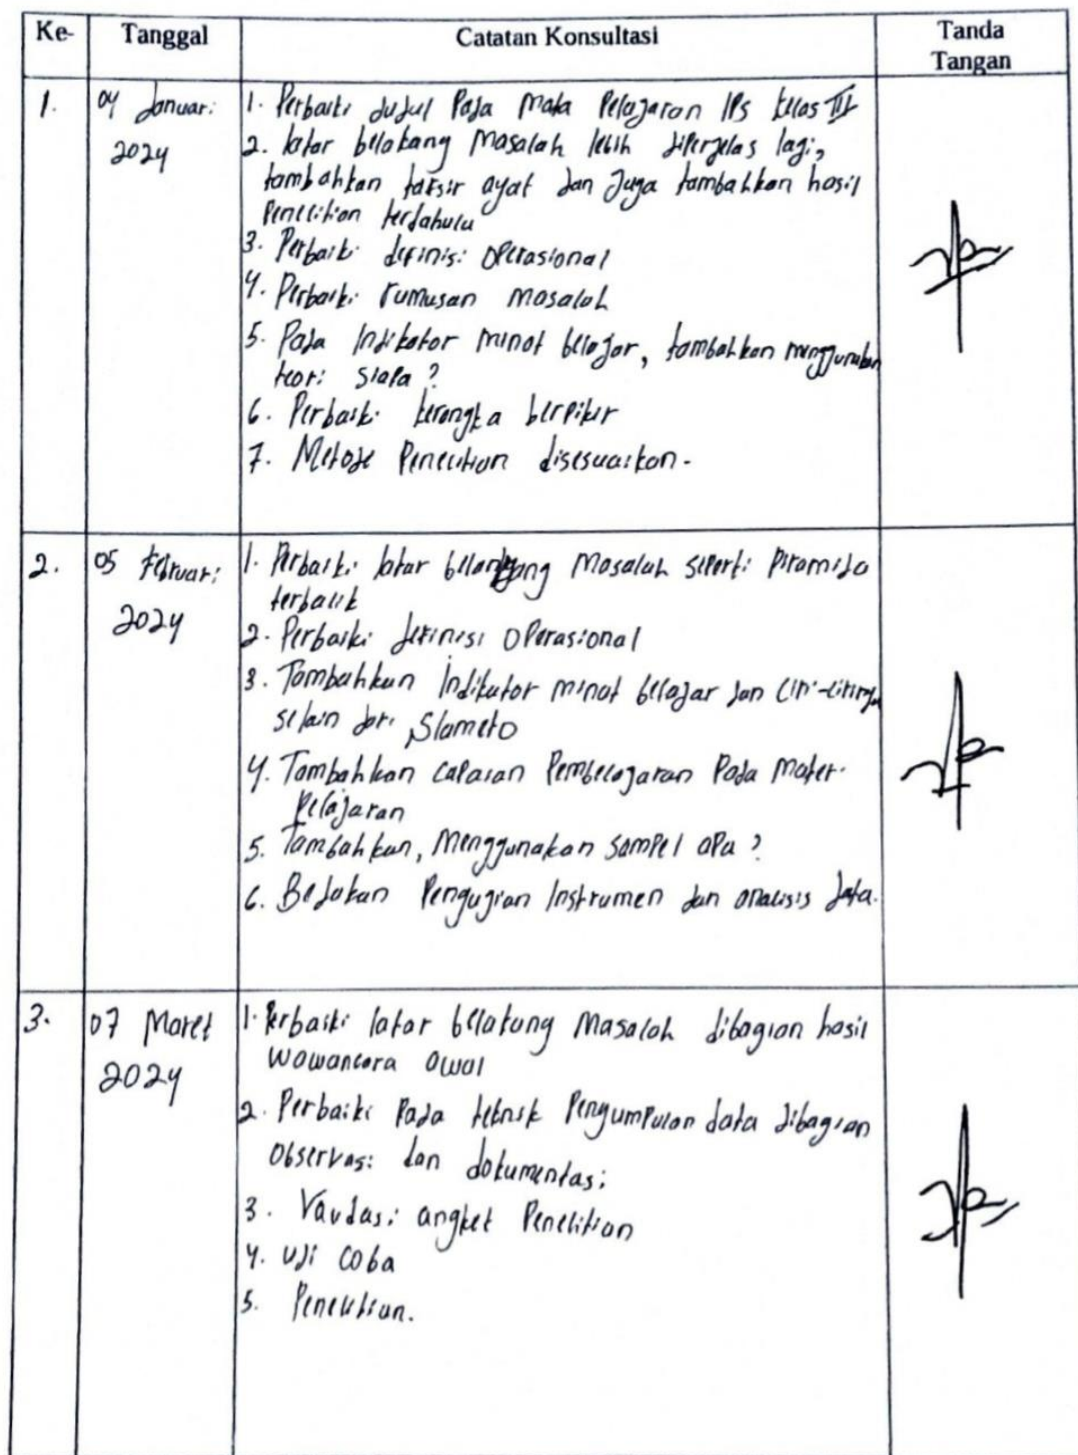 Ke- Tanggal Catatan Konsultasi Tanda Tangan
1. 04 Januari 2024
1. Perbaiki Judul Pada Mata Pelajaran IPS kelas III
2. latar belakang Masalah lebih diperjelas lagi,
tambahkan tafsir ayat dan Juga tambahkan hasil
Penelitian terdahulu
3. Perbaiki definisi Operasional
4. Perbaiki rumusan masalah
5. Pada Indikator minat belajar, tambahkan menggunakan
teori siapa?
6. Perbaiki kerangka berpikir
7. Metode Penelitian disesuaikan.
2. 05 Februari 2024
1. Perbaiki latar belangkang Masalah seperti Piramida
terbalik
2. Perbaiki definisi Operasional
3. Tambahkan Indikator minat belajar dan Ciri-cirinya
selain dari Slameto
4. Tambahkan capaian Pembelajaran Pada materi
Pelajaran
5. Tambahkan, Menggunakan sampel apa?
6. Bedakan Pengujian Instrumen dan analisis data.
3. 07 Maret 2024
1. Perbaiki latar belakang Masalah dibagian hasil
wawancara awal
2. Perbaiki Pada teknik Pengumpulan data dibagian
Observasi dan dokumentasi
3. Validasi angket Penelitian
4. Uji coba
5. Penelitian.